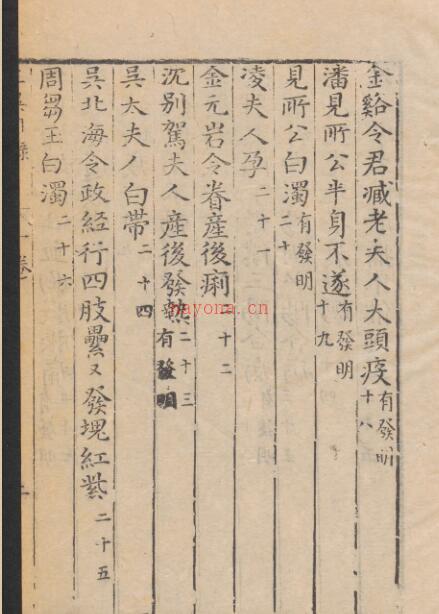 金谿令君臧老夫人大頭疫有發明十八
潘見所公半身不遂有發明十九
見所公白濁有發明二十
凌夫人孕二十一
金元岩令眷產後痢十二
沉别駕夫人產後發熱二十三有發明
吳太夫人白帶二十四
吳北海令政經行四肢㬪又發塊紅紫二十五
周芻玉白濁二十六
卷一
nayona.cn